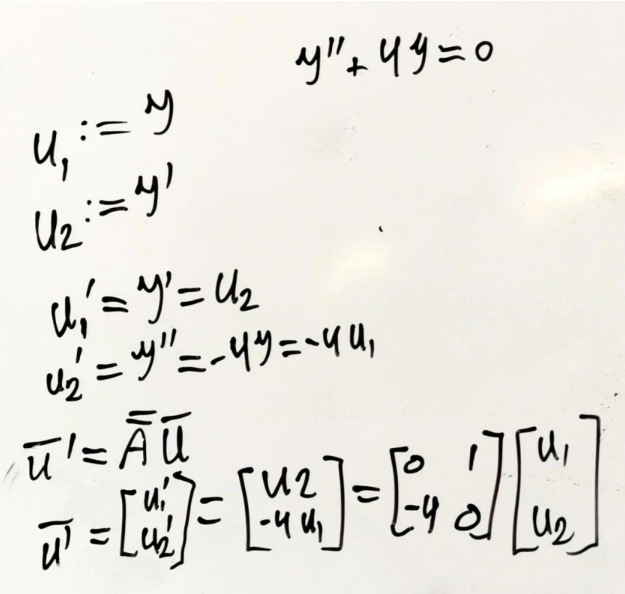 y''+ 4y = 0
u₁ := y
u₂ := y'
u₁' = y' = u₂
u₂' = y'' = -4y = -4u₁
u̅' = A̿ u̅
u̅' = [u₁' u₂'] = [u2 -4u₁] = [0 1 -4 0] [u₁ u₂]